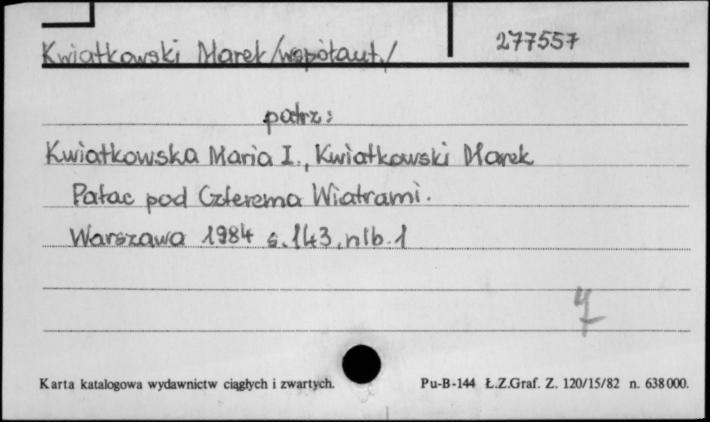 277557
Kwiatkowski Marek /współaut./
patrz:
Kwiatkowska Maria I., Kwiatkowski Marek
Pałac pod Czterema Wiatrami.
Warszawa 1984 s. 143, nlb. 1
4
Karta katalogowa wydawnictw ciągłych i zwartych. Pu-B-144 Ł.Z.Graf. Z. 120/15/82 n. 638000.